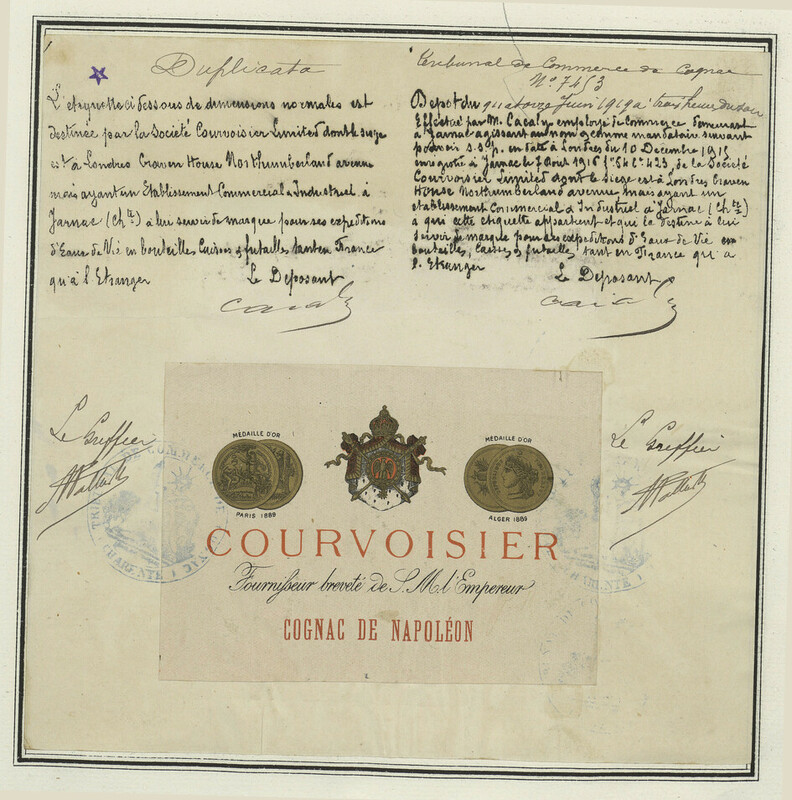 Duplicata
L'etiquette ci dessous de dimensions normales est
destinée par la Société Courvoisier Limited dont le siege
est à Londres Craven House Northumberland avenue
mais ayant un Etablissement Commercial & Industriel à
Jarnac (Chte) à lui servir de marque pour ses expeditions
d'Eaux de Vie en bouteilles Caisses & futailles tant en France
qu'à l'Etranger
Le Deposant
Tribunal de Commerce de Cognac
No 7453
Depot du quatorze Juin 1919 à trois heures du soir
Effectué par M. Cacaly employé de Commerce demeurant
à Jarnac agissant au nom & comme mandataire suivant
pouvoir s.s.p. en date à Londres du 10 Décembre 1915
enregistré à Jarnac le 7 Aout 1916 fo 54 Co 423, de la Société
Courvoisier Limited dont le Siege est à Londres Craven
House Northumberland avenue, mais ayant un
etablissement Commercial & Industriel à Jarnac (Chte)
a qui cette etiquette appartient et qui la destine à lui
servir de marque pour des expeditions d'Eaux de Vie en
bouteilles, caisses & futailles, tant en France qu'a
l'Etranger
Le Deposant
Le Greffier
Le Greffier
MÉDAILLE D'OR
PARIS 1889
MÉDAILLE D'OR
ALGER 1889
COURVOISIER
Fournisseur breveté de S.M. l'Empereur
COGNAC DE NAPOLÉON
CHARENTE
CHARENTE